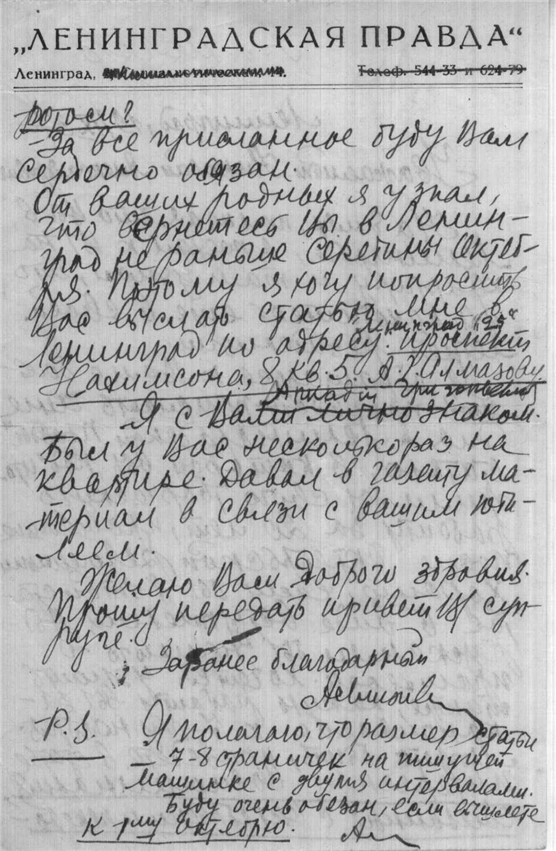 „ЛЕНИНГРАДСКАЯ ПРАВДА“
Ленинград, Телеф. 544-33 и 624-79
За все присланное буду Вам
сердечно обязан.
От ваших родных я узнал,
что вернетесь Вы в Ленин-
град не раньше середины октяб-
ря. Потому я хочу попросить
Вас выслать статью мне в
Ленинград по адресу: Ленинград "25" проспект
Нахимсона, 8, кв. 5. А. Г. Алмазову
Аркадий Григорьевич
Я с Вами лично знаком.
Был у Вас несколько раз на
квартире. Давал в газету ма-
териал в связи с вашим юби-
леем.
Желаю Вам доброго здравия.
Прошу передать привет суп-
руге.
Заранее благодарный
P.S. Я полагаю, что размер статьи
– 7-8 страничек на пишущей
машинке с двумя интервалами.
Буду очень обязан, если вышлете
к 1му октябрю.